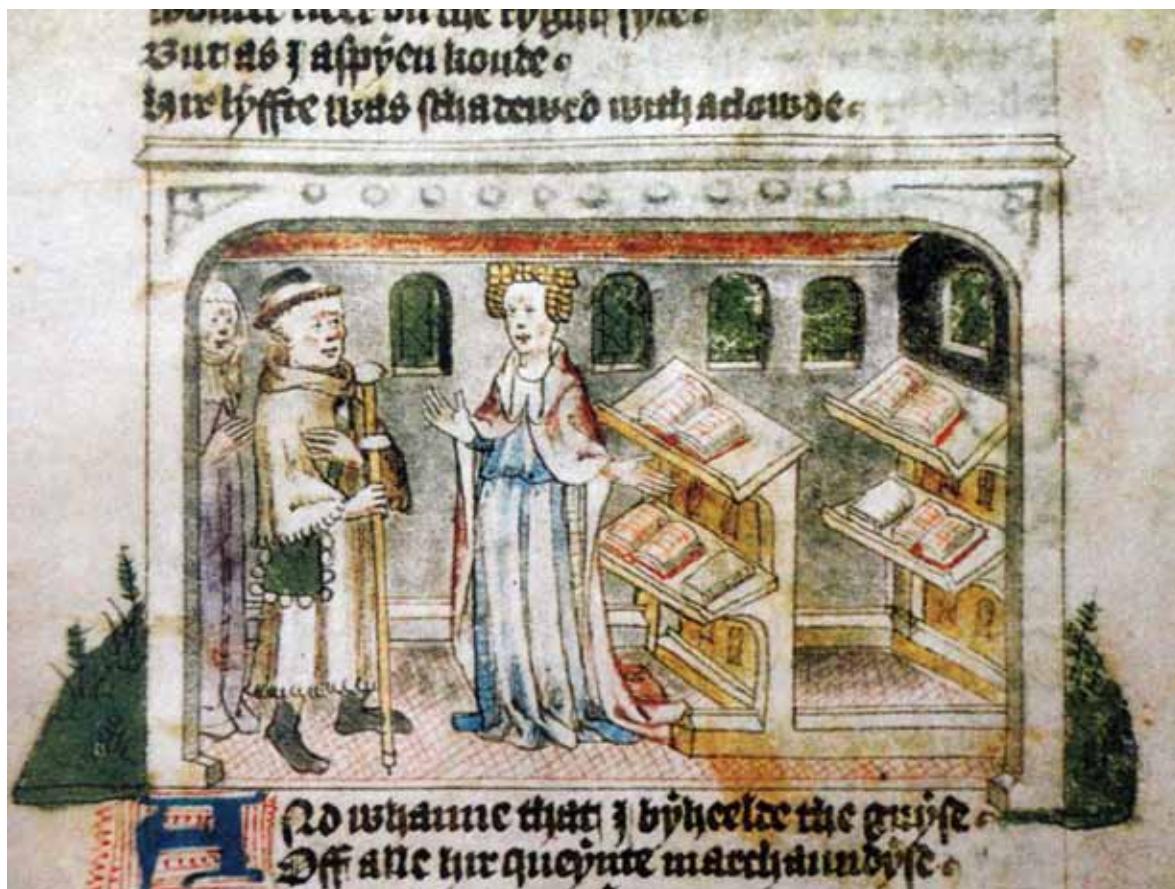 on the ryght syde.
But as I aspyen koude.
Hir lyffte was schatewed with a clowde.
And whanne that I byheelde the guyse.
Off alle hir queynte marchaundyse.